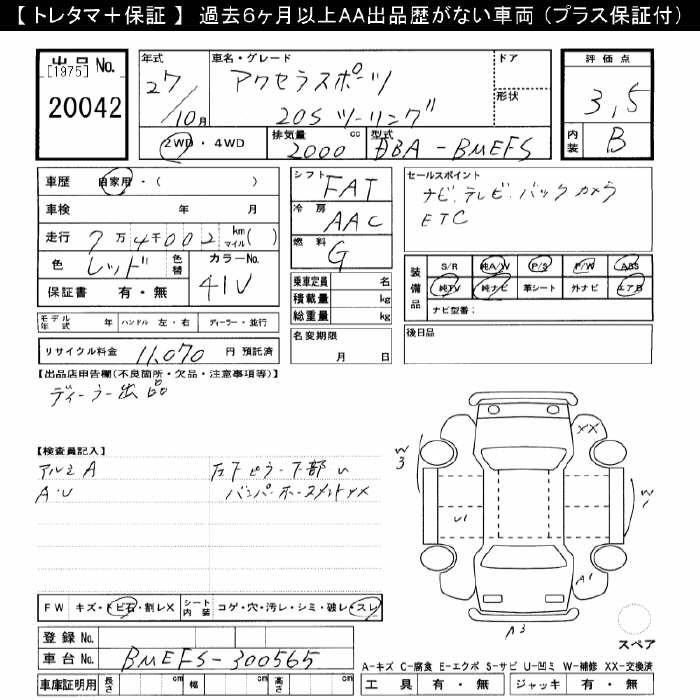 【 トレタマ＋保証 】 過去6ヶ月以上AA出品歴がない車両（プラス保証付）
出品 No.
[1975]
20042
年式
27
/10月
車名・グレード
アクセラスポーツ
20S ツーリング
ドア
形状
評価点
3,5
内装
B
2WD・4WD
排気量
2000 cc
型式
DBA - BMEFS
車歴 自家用・( )
車検 年 月
走行 7万4千002 km マイル ( )
色 レッド 色替
カラーNo.
41V
保証書 有・無
シフト FAT
冷房 AAC
燃料 G
乗車定員 名
積載量 kg
総重量 kg
セールスポイント
ナビ.テレビ.バックカメラ
ETC
装備品
S/R 純A/W P/S P/W ABS
純TV 純ナビ 革シート 外ナビ エアB
ナビ型番：
モデル年式 年 ハンドル 左・右 ディーラー・並行
名変期限
月 日
後日品
リサイクル料金 11,070 円 預託済
【出品店申告欄(不良箇所・欠品・注意事項等)】
ディーラー出品
【検査員記入】
アルミA
A・U
左下ピラー下部
バンパー
XX
W
3
W
1
U1
A1
A3
スペア
FW キズ・トビ石・割レX
シート内装 コゲ・穴・汚レ・シミ・破レ・スレ
登録 No.
車台 No. BMEFS-300565
車庫証明用 長さ cm 幅 cm 高さ cm
A-キズ C-腐食 E-エクボ S-サビ U-凹ミ W-補修 XX-交換済
工具 有・無 ジャッキ 有・無